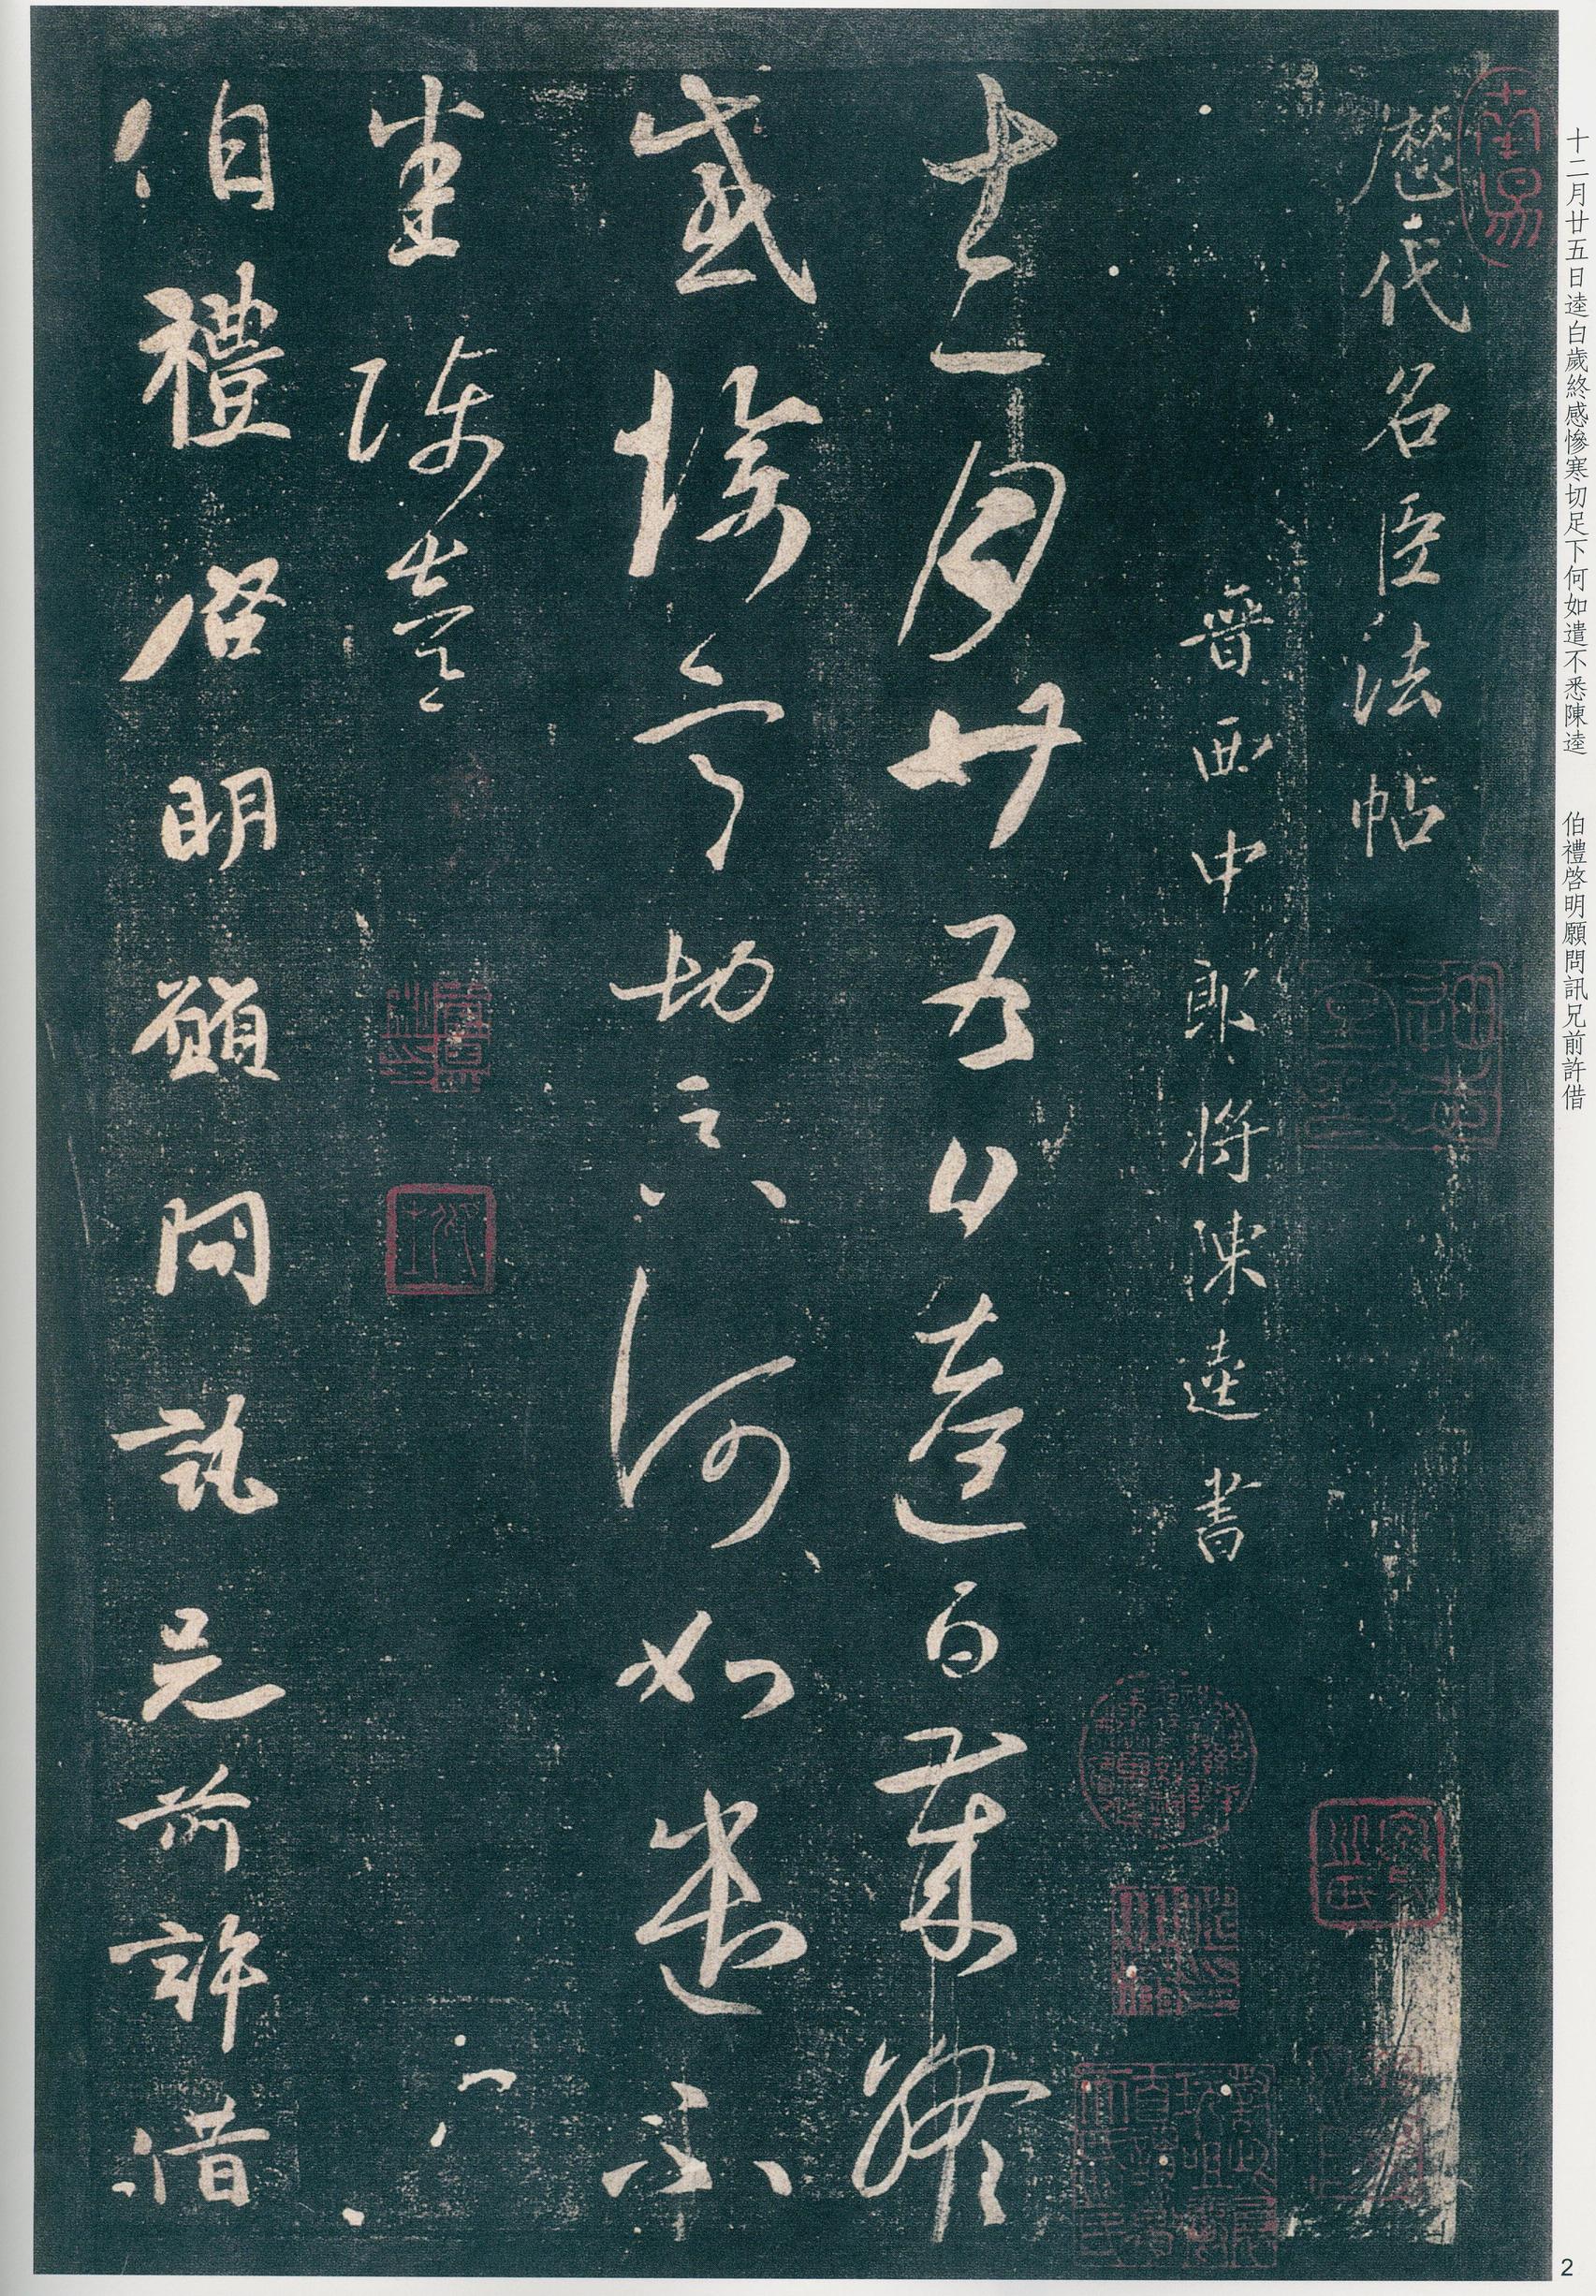 十二月廿五日逵白歲終感慘寒切足下何如遣不悉陳逵　伯禮啓明願問訊兄前許借
歷代名臣法帖
晉西中郎將陳逵書
十二月廿五日逵白歲終
感慘寒切足下何如遣不
悉陳逵
伯禮啓明願問訊兄前許借
2